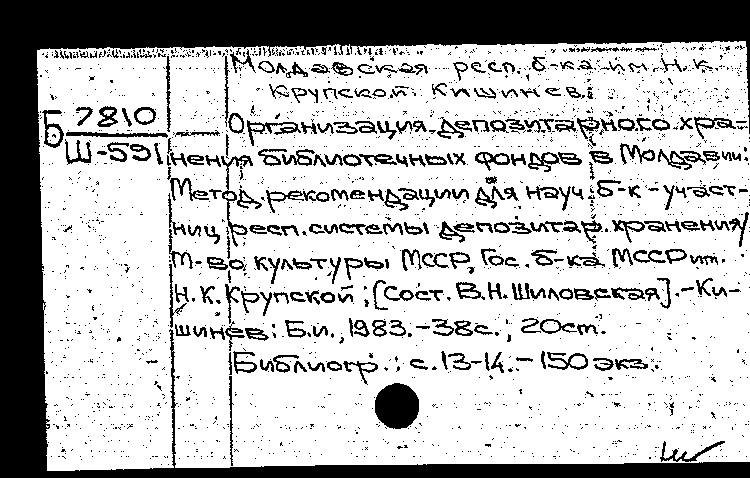 Молдавская респ. б-ка им. Н.К.
Крупской. Кишинев.
Б 7810
Ш-591
Организация депозитарного хра-
нения библиотечных фондов в Молдавии:
Метод. рекомендации для науч. б-к - участ-
ниц респ. системы депозитар. хранения /
М-во культуры МССР, Гос. б-ка МССР им.
Н.К. Крупской; [Сост. В.Н. Шиловская]. - Ки-
шинев: Б.и., 1983. - 38с.; 20см.
Библиогр.: с. 13-14. - 150 экз.